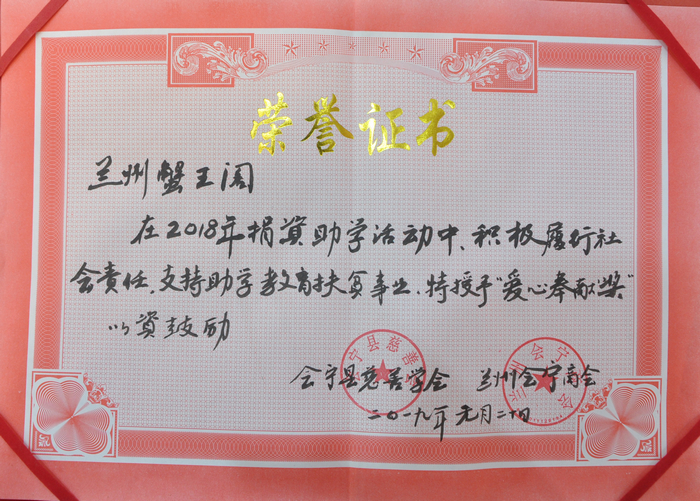 荣誉证书
兰州蟹王阁
在2018年捐资助学活动中、积极履行社
会责任、支持助学教育扶贫事业、特授予“爱心奉献奖”
以资鼓励
会宁县慈善学会 兰州会宁商会
二〇一九年元月二十日